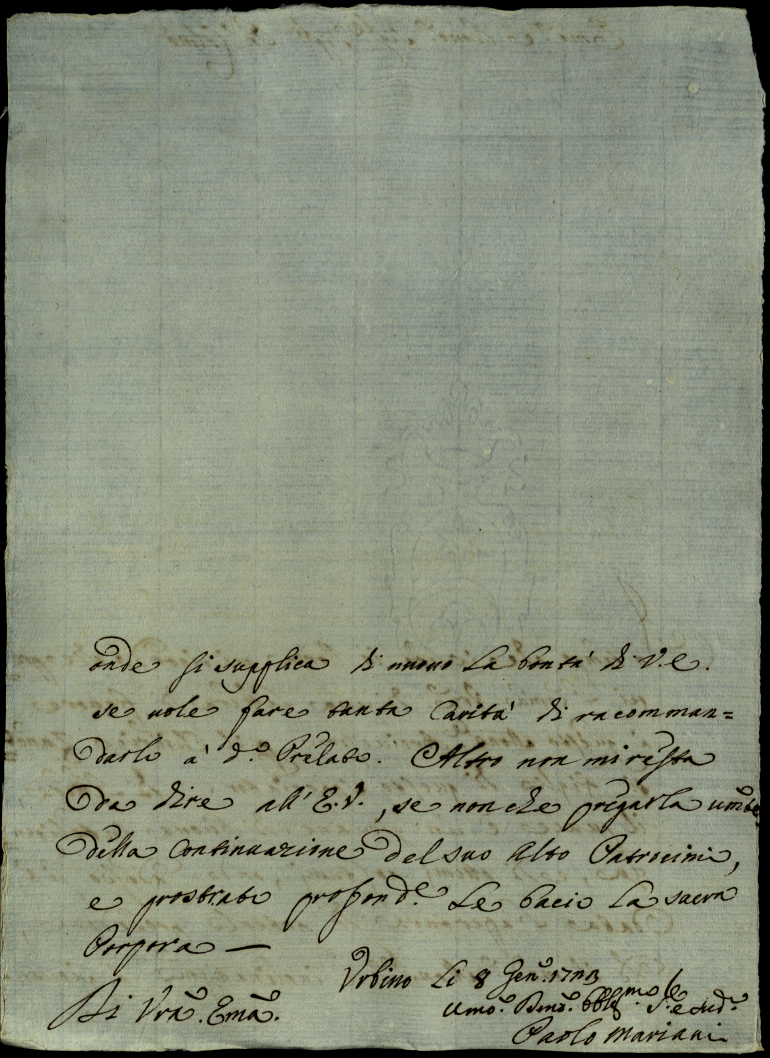 onde si supplica di nuovo la bontà di V. E.
se vole fare tanta Carità di racomman=
darlo à d.º Prelato. Altro non mi resta
da dire all' E. V., se non che pregarla
della Continuazione del suo Alto Patrocinio,
e prostrato profond.e Le bacio La sacra
Porpora —
Urbino Li 8 Gen.º
Di Vrã. Emã.
Umo. Dmo. Obblg.mo
Paolo Mariani